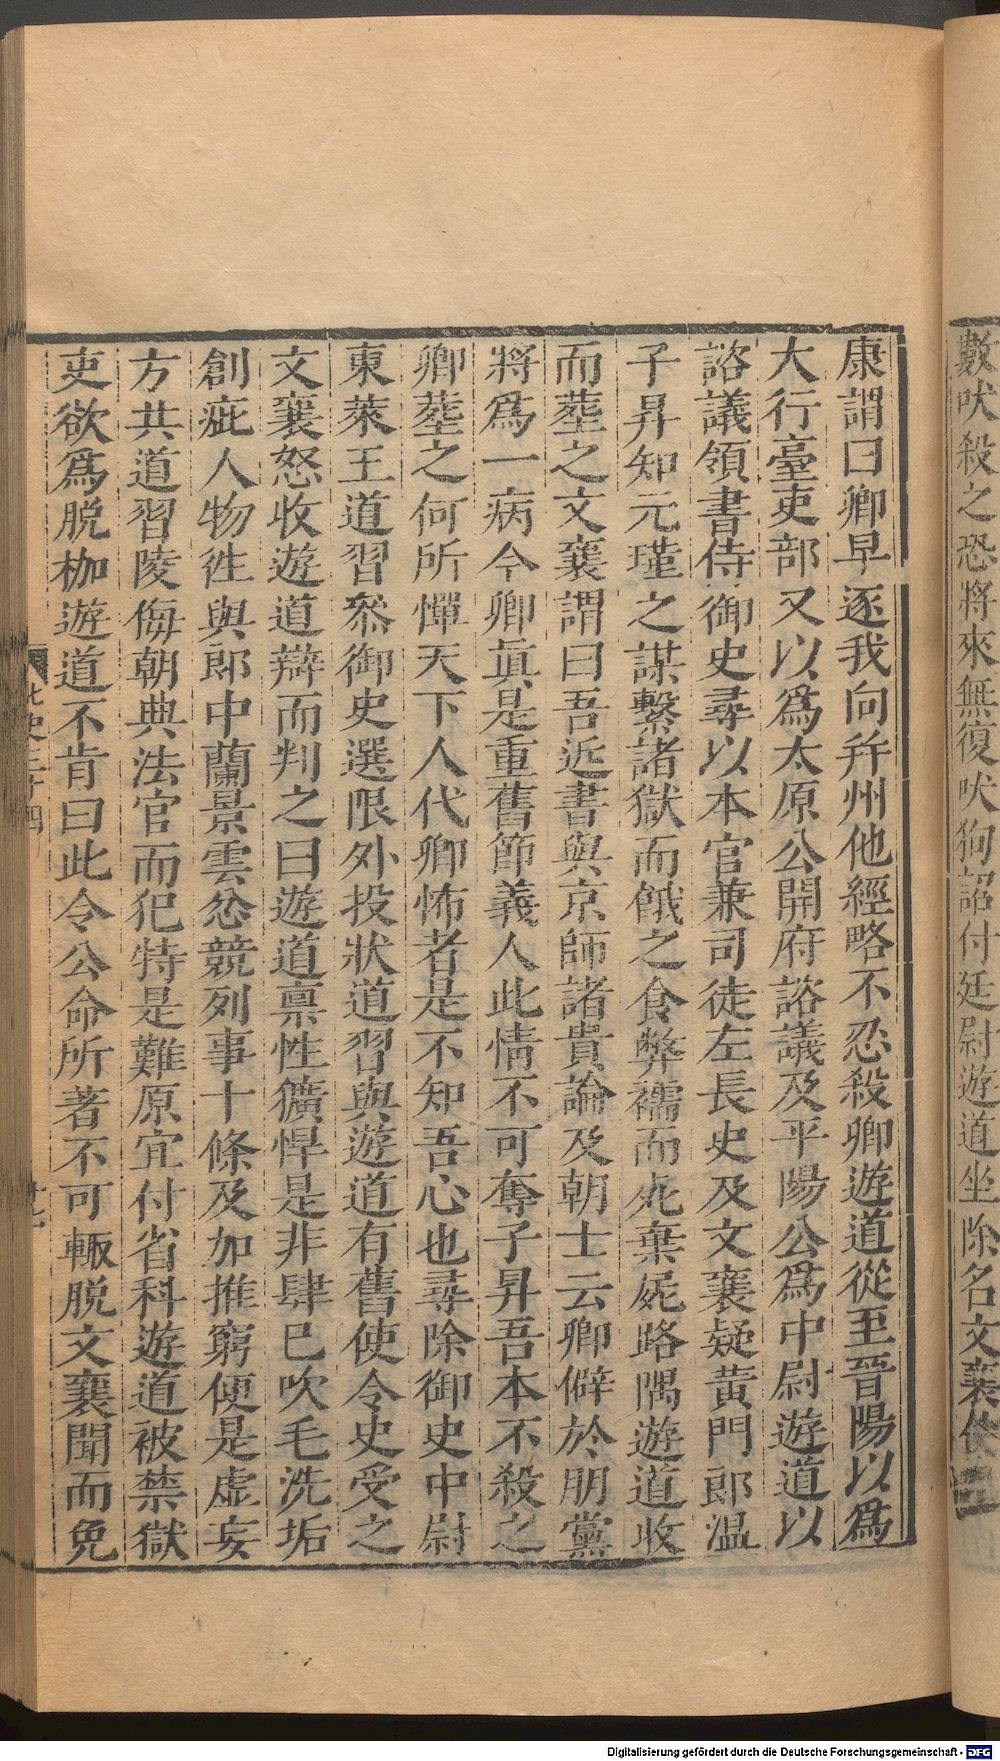 數吠殺之恐將來無復吠狗詔付廷尉遊道坐除名文襄使
康謂曰卿早逐我向幷州他經略不忍殺卿遊道從至晉陽以爲
大行臺吏部又以爲太原公開府諮議及平陽公爲中尉遊道以
諮議領書侍御史尋以本官兼司徒左長史及文襄疑黃門郎溫
子昇知元瑾之謀繫諸獄而餓之食弊襦而死棄屍路隅遊道收
而塟之文襄謂曰吾近書與京師諸貴論及朝士云卿僻於朋黨
將爲一病今卿眞是重舊節義人此情不可奪子昇吾本不殺之
卿塟之何所憚天下人代卿怖者是不知吾心也尋除御史中尉
東萊王道習叅御史選限外投狀道習與遊道有舊使令史受之
文襄怒收遊道辯而判之曰遊道禀性獷悍是非肆已吹毛洗垢
創疵人物徃與郎中蘭景雲忿競列事十條及加推窮便是虛妄
方共道習陵侮朝典法官而犯特是難原宜付省科遊道被禁獄
吏欲爲脱枷遊道不肯曰此令公命所著不可輙脱文襄聞而免
北史三十四
Digitalisierung gefördert durch die Deutsche Forschungsgemeinschaft - DFG